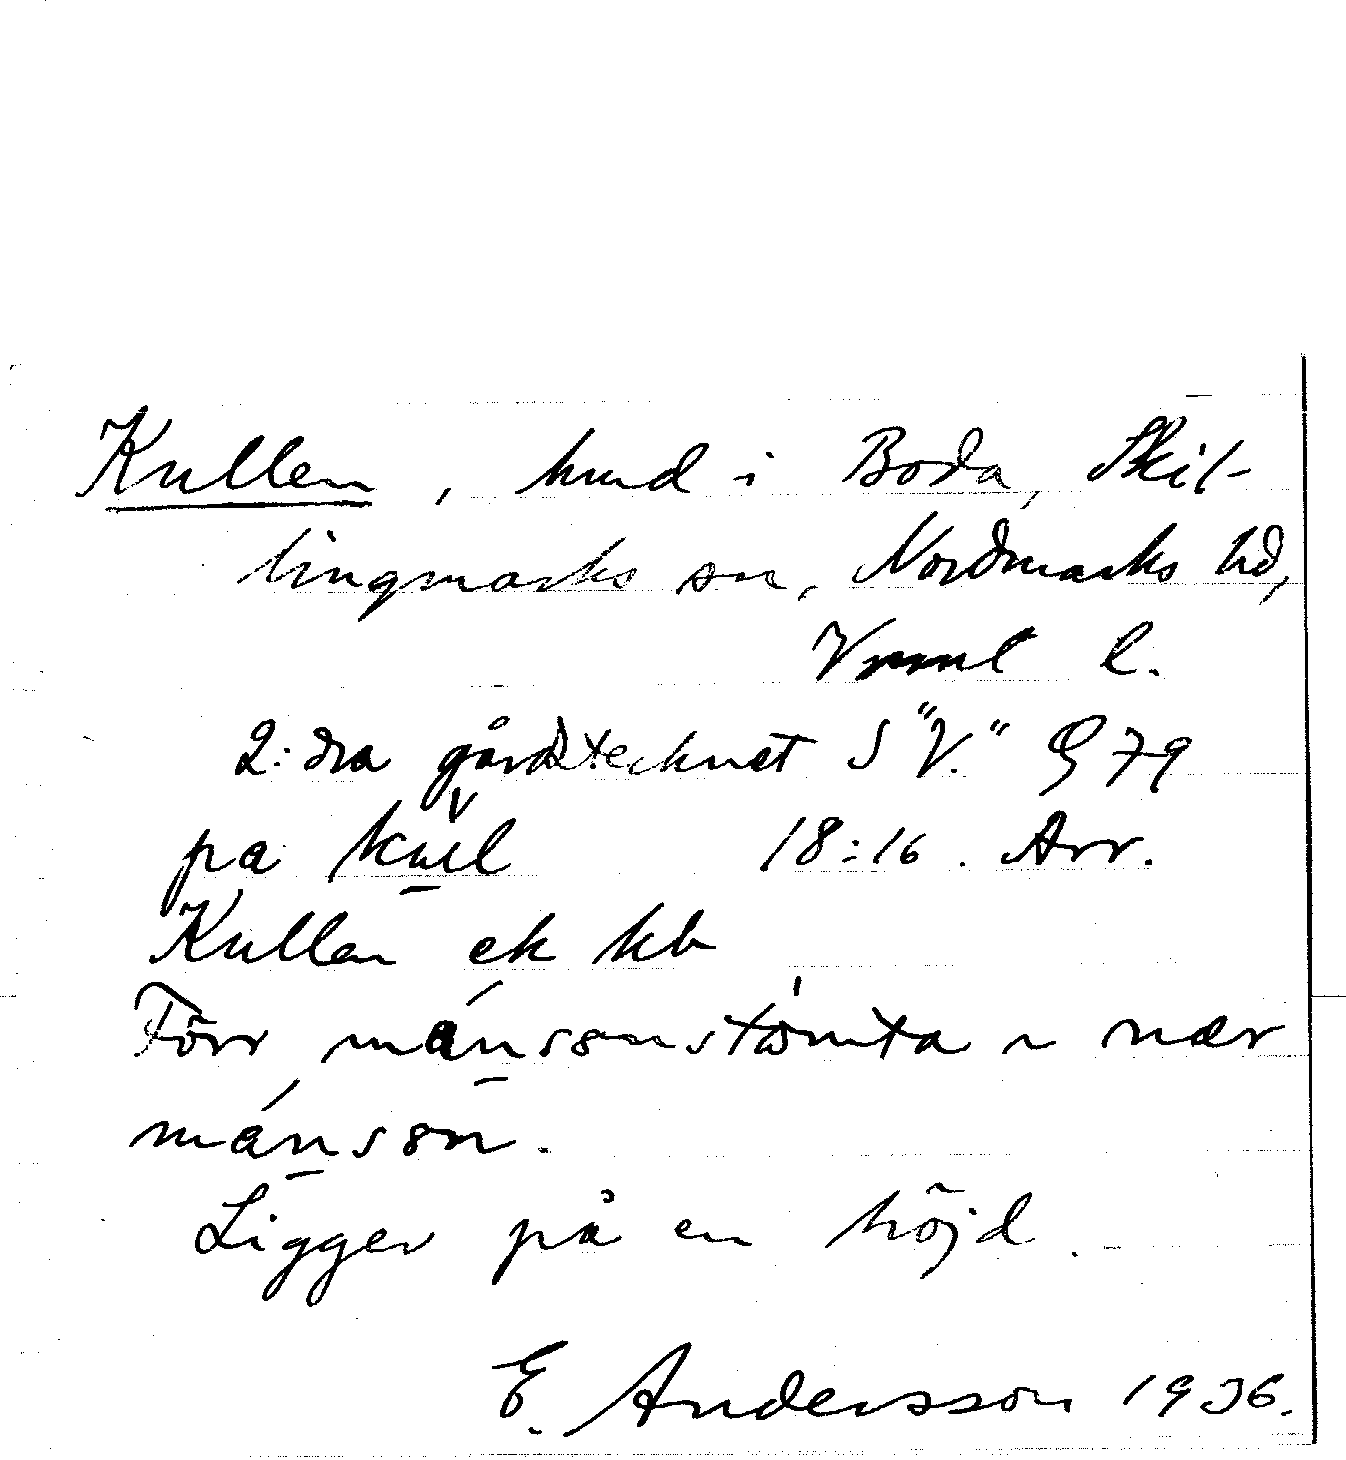 Kullen, hmd i Boda, Skil-
lingmarks sn, Nordmarks hd,
Vrml l.
2:dra gårdstecknet S "V." G 79
pa kul 18:16. Arr.
Kullen ek kb
Förr månsonstomta n nær
månson.
Ligger på en höjd.
E. Andersson 1936.